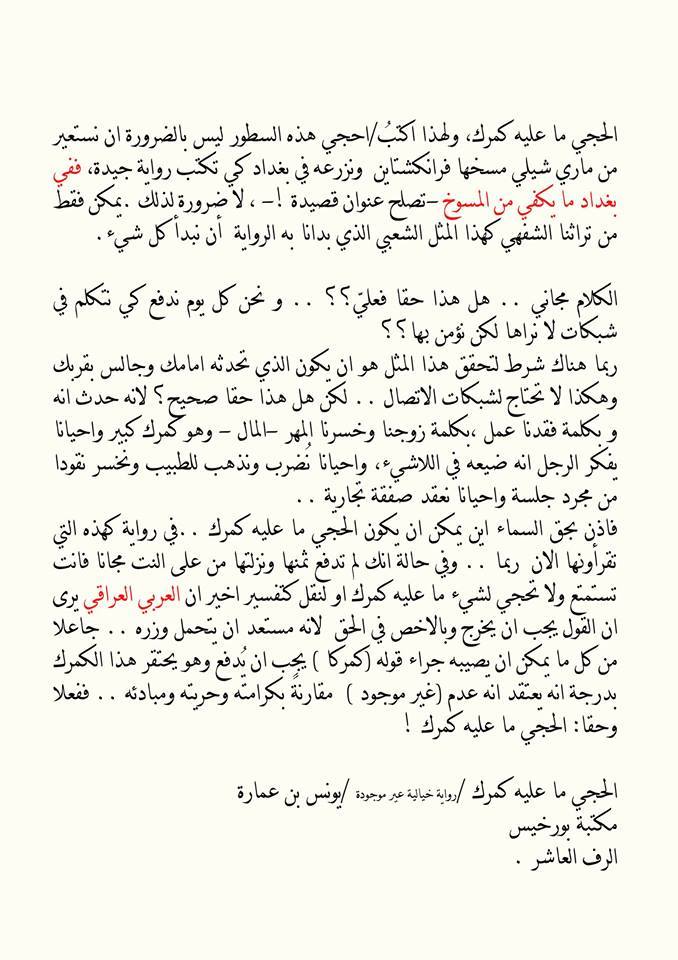 الحجي ما عليه كمرك، ولهذا اكتبُ/احجي هذه السطور ليس بالضرورة ان نستعير
من ماري شيلي مسخها فرانكشتاين ونزرعه في بغداد كي تكتب رواية جيدة، ففي
بغداد ما يكفي من المسوخ –تصلح عنوان قصيدة !– ، لا ضرورة لذلك .يمكن فقط
من تراثنا الشفهي كهذا المثل الشعبي الذي بدانا به الرواية أن نبدأ كل شيء .
الكلام مجاني . . هل هذا حقا فعليّ؟؟ . . و نحن كل يوم ندفع كي نتكلم في
شبكات لا نراها لكن نؤمن بها؟؟
ربما هناك شرط لتحقق هذا المثل هو ان يكون الذي تحدثه امامك وجالس بقربك
وهكذا لا تحتاج لشبكات الاتصال . . لكن هل هذا حقا صحيح؟ لانه حدث انه
و بكلمة فقدنا عمل ،بكلمة زوجنا وخسرنا المهر –المال – وهو كمرك كبير واحيانا
يفكر الرجل انه ضيعه في اللاشيء، واحيانا نُضرب ونذهب للطبيب ونخسر نقودا
من مجرد جلسة واحيانا نعقد صفقة تجارية . .
فاذن بحق السماء اين يمكن ان يكون الحجي ما عليه كمرك . .في رواية كهذه التي
تقرأونها الان ربما . . وفي حالة انك لم تدفع ثمنها ونزلتها من على النت مجانا فانت
تستمتع ولا تحجي لشيء ما عليه كمرك او لنقل كتفسير اخير ان العربي العراقي يرى
ان القول يجب ان يخرج وبالاخص في الحق لانه مستعد ان يتحمل وزره . . جاعلا
من كل ما يمكن ان يصيبه جراء قوله (كمركا ) يجب ان يُدفع وهو يحتقر هذا الكمرك
بدرجة انه يعتقد انه عدم (غير موجود ) مقارنةً بكرامته وحريته ومبادئه . . ففعلا
وحقا: الحجي ما عليه كمرك !
الحجي ما عليه كمرك /رواية خيالية غير موجودة /يونس بن عمارة
مكتبة بورخيس
الرف العاشر .